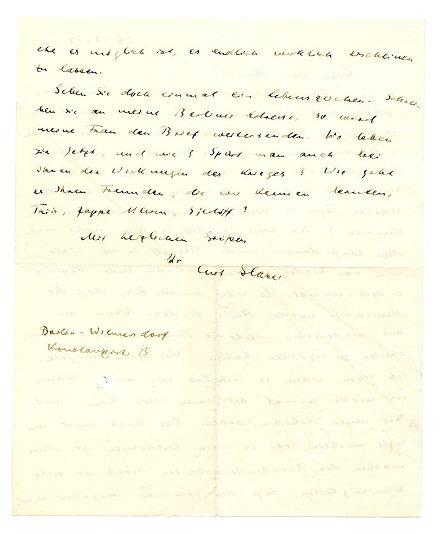 ehe es möglich ist, es endlich wirklich erscheinen
zu lassen.
Geben Sie doch einmal ein Lebenszeichen. Schrei-
ben Sie an meine Berliner Adresse, so wird
meine Frau den Brief weitersenden. Wo leben
Sie jetzt, und wie? Spürt man auch bei
Ihnen den Wirkungen des Krieges? Wie geht
es Ihren Freunden, die wir kennen lernten,
Mit herzlichen Grüßen
Ihr
Curt Glaser
Berlin-Wilmersdorf
Konstanzerstr. 15